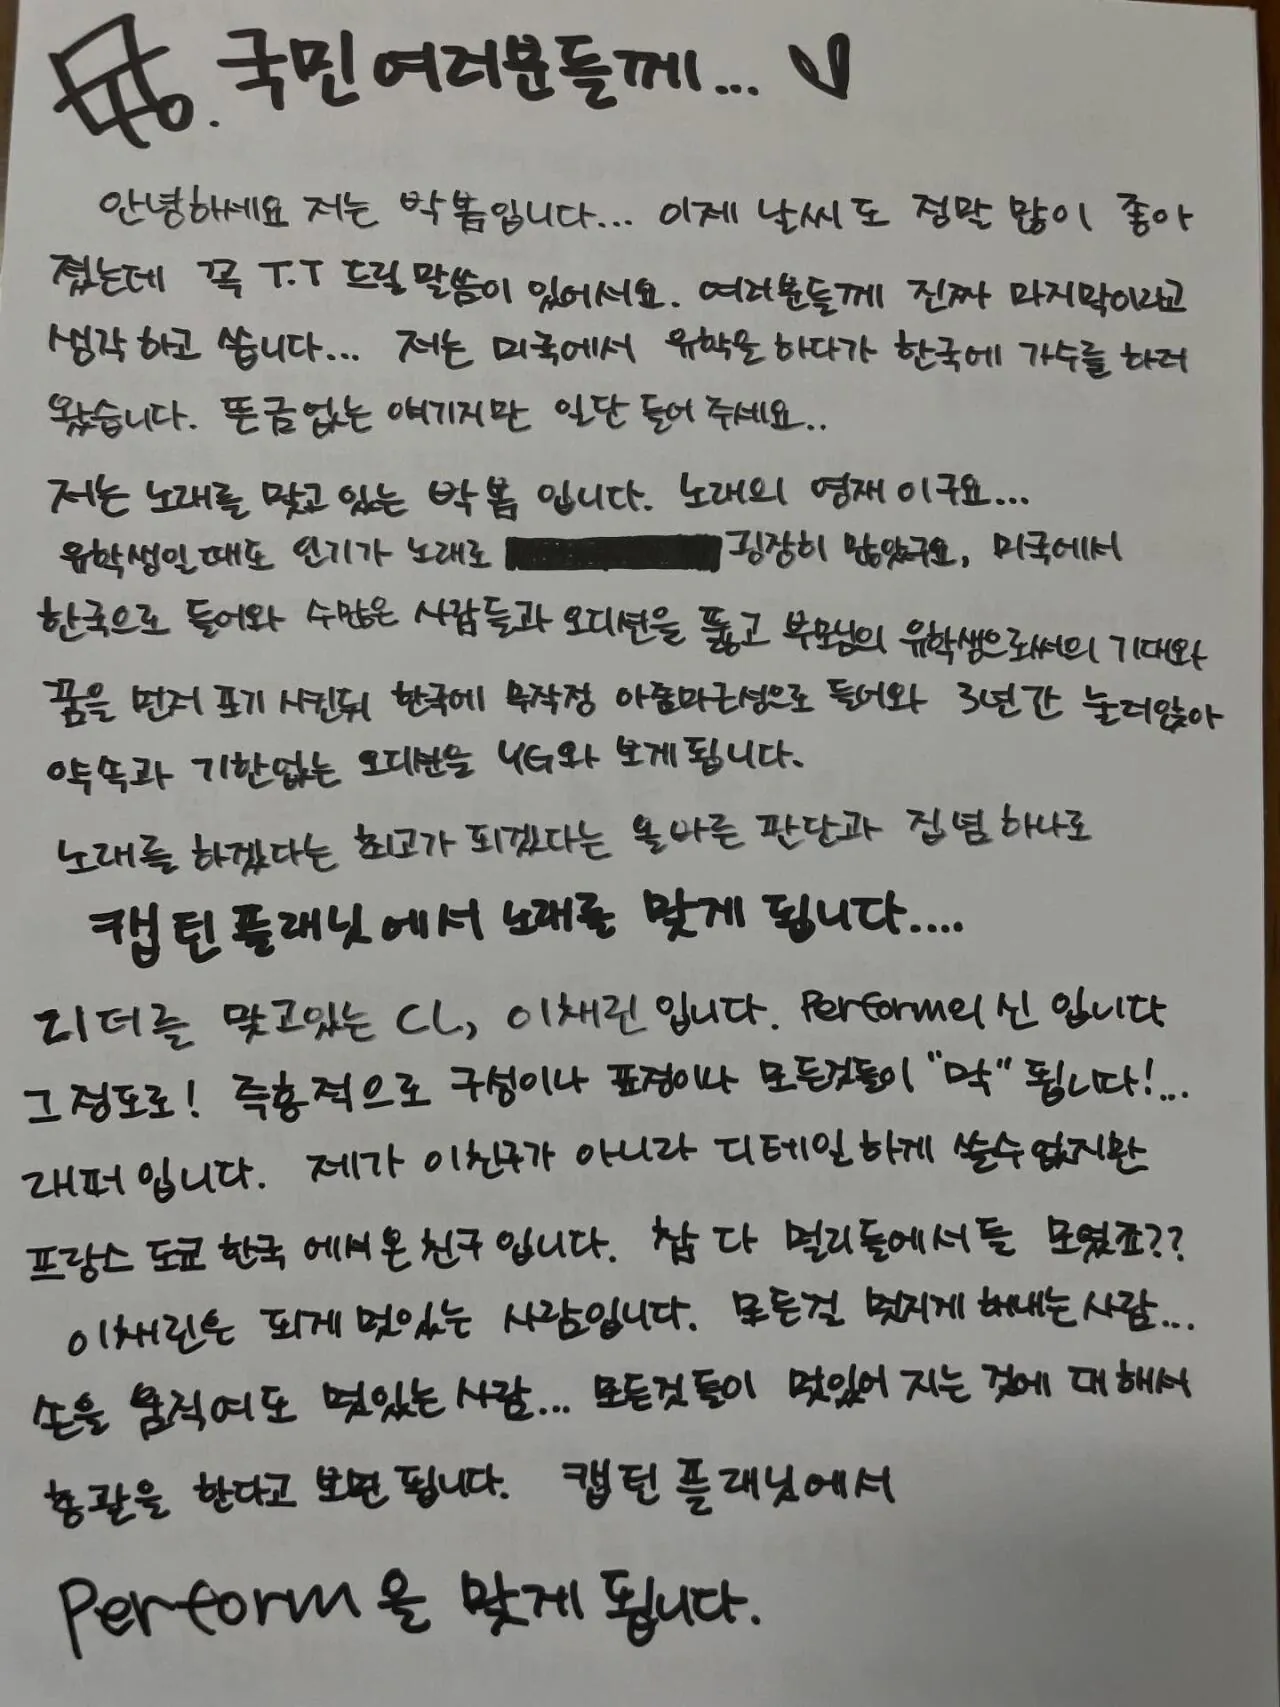 국민여러분들께...
안녕하세요 저는 박봄입니다... 이제 날씨도 정말 많이 좋아
졌는데 꼭 T.T 드릴말씀이 있어서요. 여러분들께 진짜 마지막이라고
생각하고 씁니다... 저는 미국에서 유학을 하다가 한국에 가수를 하러
왔습니다. 뜬금없는 얘기지만 일단 들어 주세요..
저는 노래를 맞고 있는 박봄 입니다. 노래의 영재이구요...
유학생일때도 인기가 노래로 굉장히 많았구요, 미국에서
한국으로 들어와 수많은 사람들과 오디션을 뚫고 부모님의 유학생으로써의 기대와
꿈을 먼저 포기 시킨뒤 한국에 무작정 아줌마근성으로 들어와 3년간 눌러앉아
약속과 기한없는 오디션을 YG와 보게됩니다.
노래를 하겠다는 최고가 되겠다는 올바른 판단과 집념 하나로
캡틴플래닛에서 노래를 맞게 됩니다....
리더를 맞고있는 CL, 이채린입니다. Perform의 신 입니다
그정도로! 즉흥적으로 구성이나 표정이나 모든것들이 "막" 됩니다!...
래퍼입니다. 제가 이친구가 아니라 디테일하게 쓸수없지만
프랑스 도쿄 한국 에서온친구입니다. 참 다 멀리들에서들 모였죠??
이채린은 되게 멋있는 사람입니다. 모든걸 멋지게 해내는사람...
손을 움직여도 멋있는사람... 모든것들이 멋있어 지는 것에 대해서
총괄을 한다고 보면 됩니다. 캡틴 플래닛에서
Perform을 맞게 됩니다.